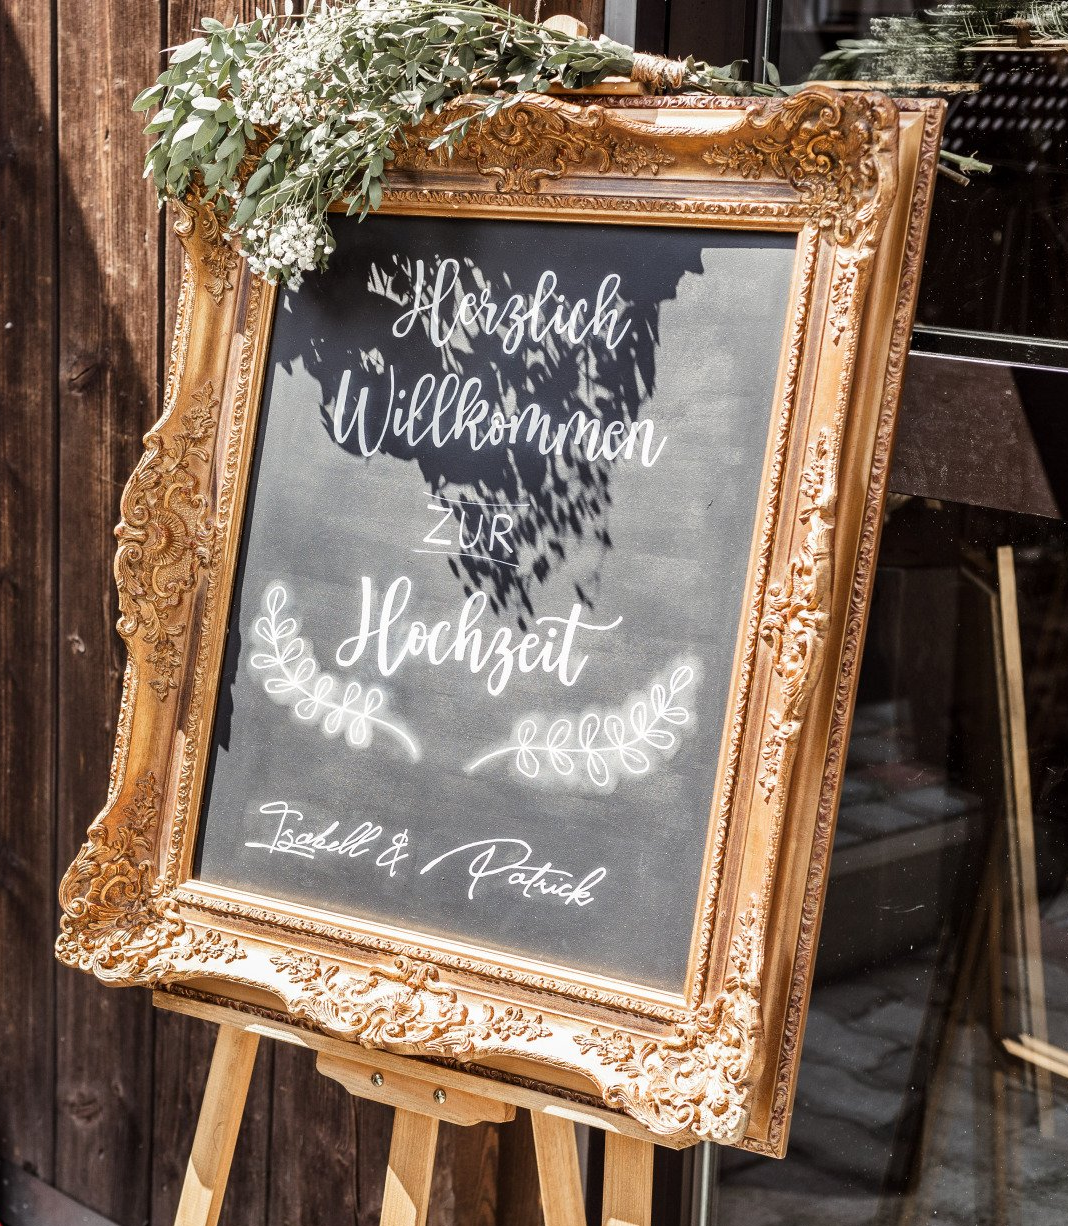 Herzlich
Willkommen
ZUR
Hochzeit
Isabell & Patrick